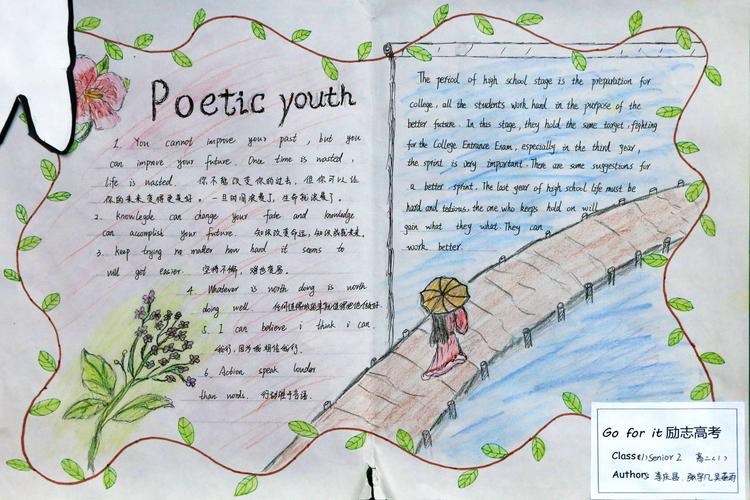 Poetic youth
1. You cannot improve your past, but you
can improve your future. Once time is wasted,
life is wasted. 你不能改变你的过去,但你可以让
你的未来变得更美好。一旦时间浪费了,生命就浪费了。
2. knowlegde can change your fate and knowledge
can accomplish your future. 知识改变命运,知识成就未来.
3. keep trying no matter how hard it seems to
will got easier. 坚持不懈,难也变易。
4. Whatever is worth doing is worth
doing well.
5. I can believe i think i can.
我行,因为我相信我行.
6. Action speak louder
than words. 行动胜于言语.
The period of high school stage is the preparation for
college, all the students work hard in the purpose of the
better future. In this stage, they hold the same target, fighting
for the College Entrance Exam, especially in the third year,
the sprint is very important. There are some suggestions for
a better sprint. The last year of high school life must be
hard and tedious, the one who keeps hold on will
gain what they what. They can
work better.
Go for it 励志高考
Class: (1) Senior 2 高二(1)
Authors: 李庆昌